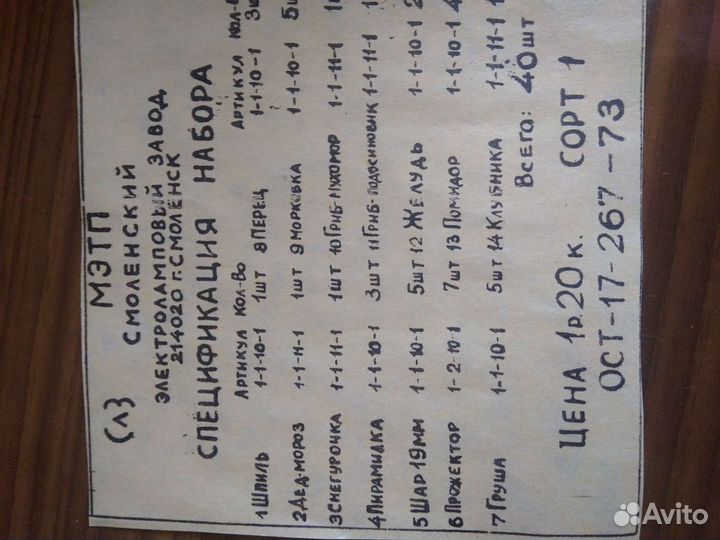 МЭТП
(Л3) СМОЛЕНСКИЙ
ЭЛЕКТРОЛАМПОВЫЙ ЗАВОД
214020 г. СМОЛЕНСК
СПЕЦИФИКАЦИЯ НАБОРА
АРТИКУЛ КОЛ-ВО АРТИКУЛ КОЛ-В
1 ШПИЛЬ 1-1-10-1 1ШТ 8 ПЕРЕЦ 1-1-10-1 3Ш
2 ДЕД-МОРОЗ 1-1-11-1 1ШТ 9 МОРКОВКА 1-1-10-1 5Ш
3 СНЕГУРОЧКА 1-1-11-1 1ШТ 10 ГРИБ-МУХОМОР 1-1-11-1
4 ПИРАМИДКА 1-1-10-1 3ШТ 11 ГРИБ-ПОДОСИНОВИК 1-1-11-1
5 ШАР 19ММ 1-1-10-1 5ШТ 12 ЖЕЛУДЬ 1-1-10-1 2
6 ПРОЖЕКТОР 1-2-10-1 7ШТ 13 ПОМИДОР 1-1-10-1 4
7 ГРУША 1-1-10-1 5ШТ 14 КЛУБНИКА 1-1-11-1
ВСЕГО: 40ШТ
ЦЕНА 1р. 20к. СОРТ 1
ОСТ-17-267-73
Avito